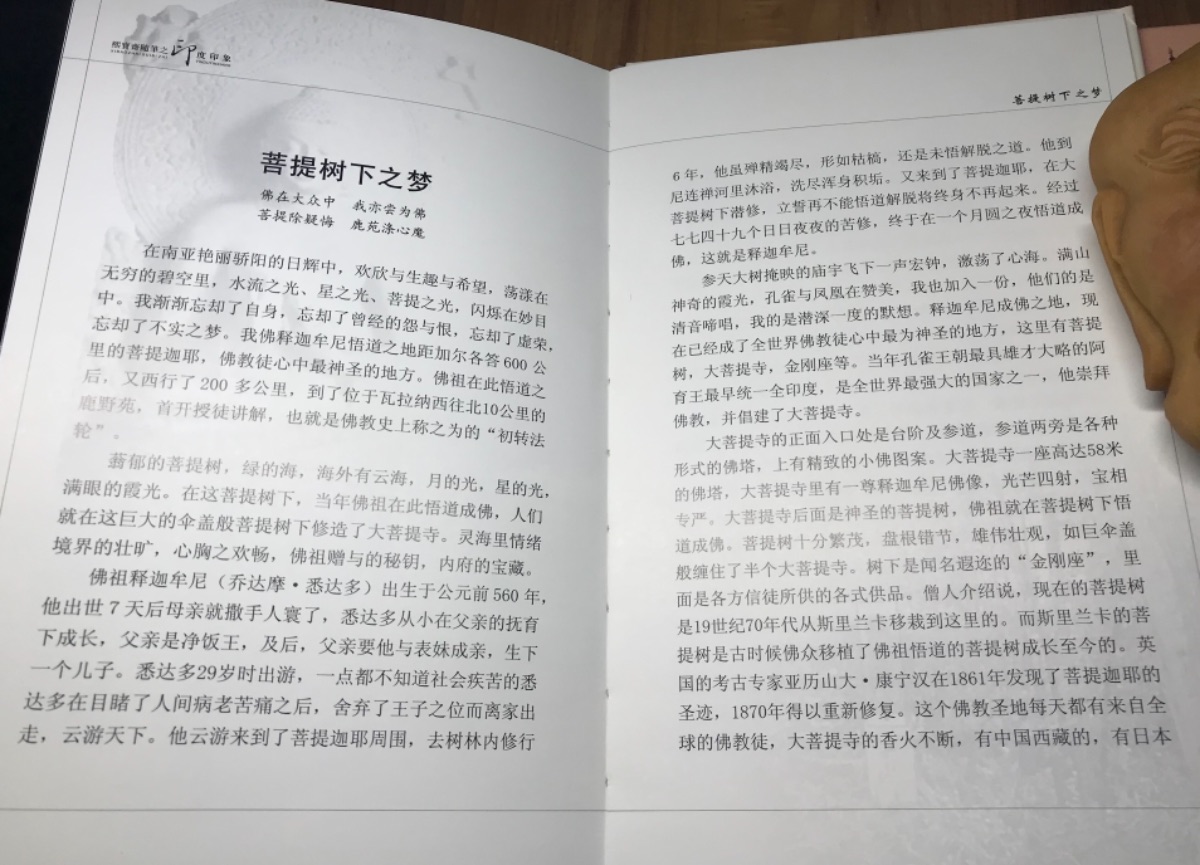 随笔之印度印象
菩提树下之梦
佛在大众中 我亦尝为佛
菩提除疑悔 鹿苑涤心魔
在南亚艳丽骄阳的日辉中，欢欣与生趣与希望，荡漾在
无穷的碧空里，水流之光、星之光、菩提之光，闪烁在妙目
中。我渐渐忘却了自身，忘却了曾经的怨与恨，忘却了虚荣，
忘却了不实之梦。我佛释迦牟尼悟道之地距加尔各答600公
里的菩提迦耶，佛教徒心中最神圣的地方。佛祖在此悟道之
后，又西行了200多公里，到了位于瓦拉纳西往北10公里的
鹿野苑，首开授徒讲解，也就是佛教史上称之为的“初转法
轮”。
蓊郁的菩提树，绿的海，海外有云海，月的光，星的光，
满眼的霞光。在这菩提树下，当年佛祖在此悟道成佛，人们
就在这巨大的伞盖般菩提树下修造了大菩提寺。灵海里情绪
境界的壮旷，心胸之欢畅，佛祖赠与的秘钥，内府的宝藏。
佛祖释迦牟尼（乔达摩·悉达多）出生于公元前560年，
他出世7天后母亲就撒手人寰了，悉达多从小在父亲的抚育
下成长，父亲是净饭王，及后，父亲要他与表妹成亲，生下
一个儿子。悉达多29岁时出游，一点都不知道社会疾苦的悉
达多在目睹了人间病老苦痛之后，舍弃了王子之位而离家出
走，云游天下。他云游来到了菩提迦耶周围，去树林内修行
菩提树下之梦
6年，他虽殚精竭尽，形如枯槁，还是未悟解脱之道。他到
尼连禅河里沐浴，洗尽浑身积垢。又来到了菩提迦耶，在大
菩提树下潜修，立誓再不能悟道解脱将终身不再起来。经过
七七四十九个日日夜夜的苦修，终于在一个月圆之夜悟道成
佛，这就是释迦牟尼。
参天大树掩映的庙宇飞下一声宏钟，激荡了心海。满山
神奇的霞光，孔雀与凤凰在赞美，我也加入一份，他们的是
清音啼唱，我的是潜深一度的默想。释迦牟尼成佛之地，现
在已经成了全世界佛教徒心中最为神圣的地方，这里有菩提
树，大菩提寺，金刚座等。当年孔雀王朝最具雄才大略的阿
育王最早统一全印度，是全世界最强大的国家之一，他崇拜
佛教，并倡建了大菩提寺。
大菩提寺的正面入口处是台阶及参道，参道两旁是各种
形式的佛塔，上有精致的小佛图案。大菩提寺一座高达58米
的佛塔，大菩提寺里有一尊释迦牟尼佛像，光芒四射，宝相
专严。大菩提寺后面是神圣的菩提树，佛祖就在菩提树下悟
道成佛。菩提树十分繁茂，盘根错节，雄伟壮观，如巨伞盖
般缠住了半个大菩提寺。树下是闻名遐迩的“金刚座”，里
面是各方信徒所供的各式供品。僧人介绍说，现在的菩提树
是19世纪70年代从斯里兰卡移栽到这里的。而斯里兰卡的菩
提树是古时候佛众移植了佛祖悟道的菩提树成长至今的。英
国的考古专家亚历山大·康宁汉在1861年发现了菩提迦耶的
圣迹，1870年得以重新修复。这个佛教圣地每天都有来自全
球的佛教徒，大菩提寺的香火不断，有中国西藏的，有日本